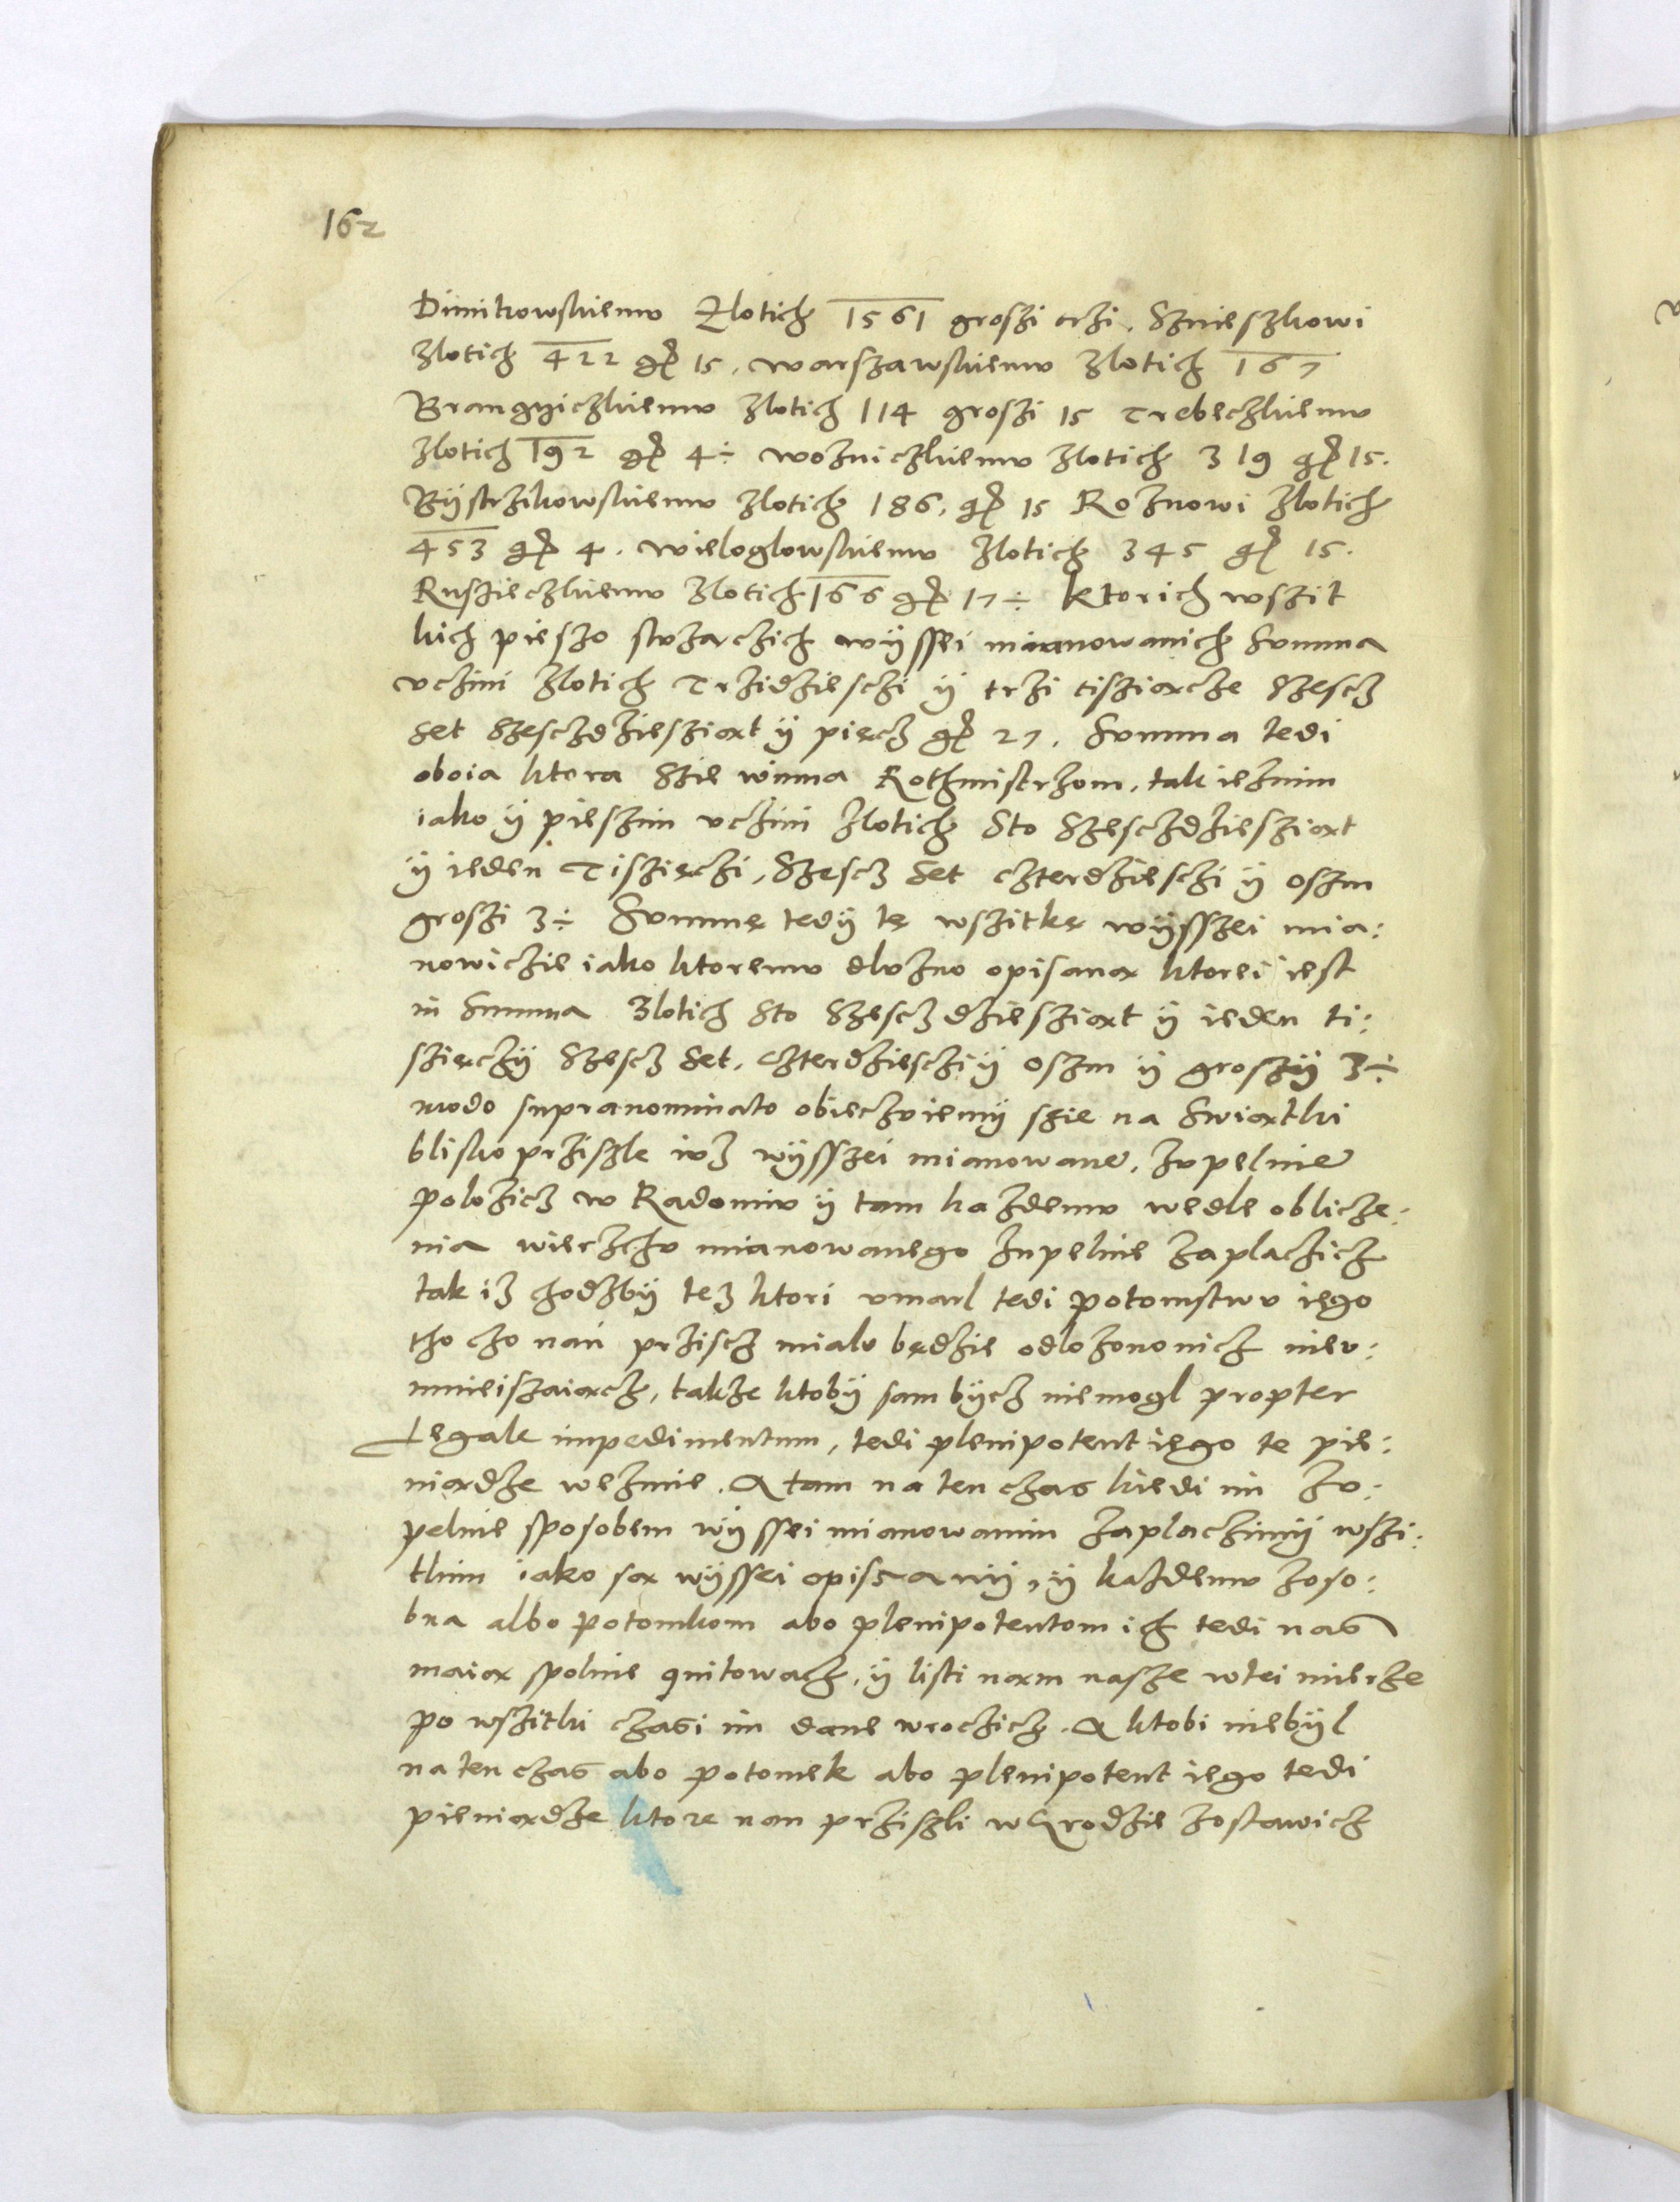 162
Dimitrowskiemv Zlotich 1561 groszi trzi. Sznieszkowi
zlotich 422 gr 15. warszawskiemv zlotich 167
Brangyiczkiemv zlotich 114 groszi 15 Trebeczkiemv
zlotich 192 gr 4÷ wozniczkiemv zlotich 319 gr 15.
Bÿstrzikowskiemv zlotich 186. gr 15 Roznowi zlotich
453 gr 4. wieloglowskiemv zlotich 345 gr 15.
Rusieczkiemv zlotich 166 gr 17÷ ktorich wszit
kich pieszo sluzaczich wÿssei mianowanich Summa
vczini zlotich Trzidzieschi ÿ trzi tisziącze Szescz
set szesczdzieszioąt ÿ pięcz gr 27. Summa tedi
oboia ktora szie winna Rothmistrzom, tak ieznim
iako ÿ pieszim vczini zlotich Sto Szesczdziesziąt
ÿ ieden Tiszięczi, Szescz set czterdzieschi ÿ oszm
groszi 3÷ Summę tedÿ tę wszitkę wÿsszei mia:
nowiczie iako ktoremv dluzno opisaną ktorei iest
in Summa Zlotich Sto Szesczdziesziąt ÿ ieden ti:
szięczÿ Szescz set. Czterdzieschi ÿ oszm ÿ groszÿ 3÷
modo supranominato obieczviemÿ szie na Swiąthki
blisko prziszle ivz wÿsszei mianowane, zvpelnie
polozicz w Radomiv ÿ tam kazdemv wedle oblicze:
nia wierzchv mianowanego zupelnie zaplaczicz
tak iz chodzbÿ tez ktori vmarl tedi potomstwv iego
tho czo nań prziscz mialo będzie odlozono nicz niev:
mnieiszaiącz, takze ktobÿ sam bÿcz niemogl propter
Legale impedimentum, tedi plenipotent iego te pie:
niądze wezmie. A tam na ten czas kiedi im zv:
pelnie sposobem wÿssei mianowanim zaplaczimÿ wszi:
tkim iako są wÿssei opisanÿ, ÿ kazdemv zoso:
bna albo potomkom abo plenipotentom ich tedi nas
maią spolnie quitowacz, ÿ listi nąm nasze wtei mierze
po wszitki czasi im dane wroczicz. A ktobi niebÿl
na ten czas abo potomek abo plenipotent iego tedi
pieniądze ktore nan prziszli w Grodzie zostawicz